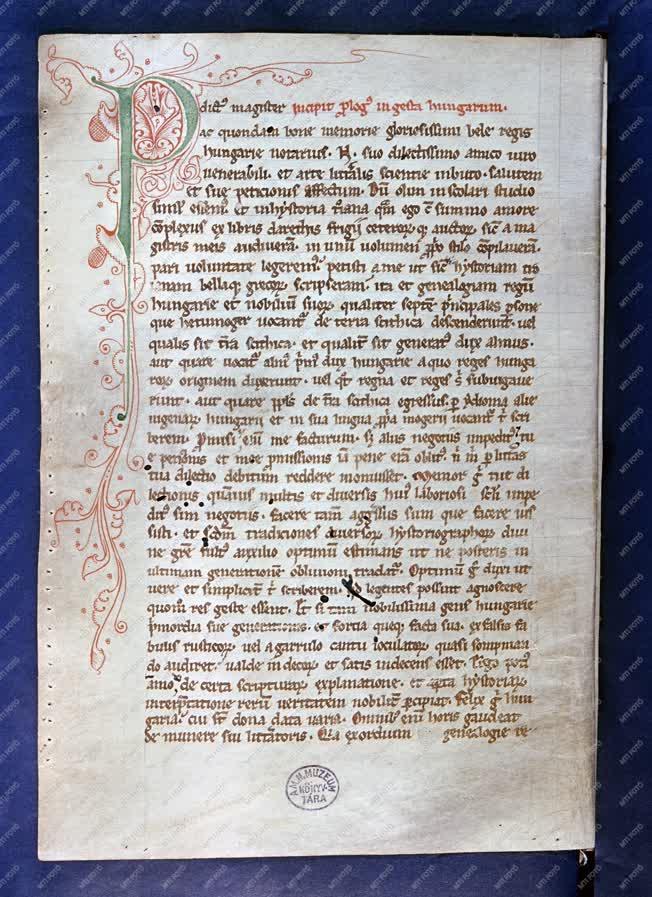 P dict᷒ magister Incipit ꝓlog᷒ in gesta hungarum.
ac quondam bone memorie gloriosissimi bele regis
hungarie notarius. N. suo dilectissimo amico uiro
uenerabili. et arte litt̄alis scientie inbuto. Salutem
et sue peticionis affectum. Dū olim in scolari studio
simul essem᷒. et in hystoria t̄iana q̄m ego cū summo amore
cōplexus ex libris darethis frigii ceterorꝫ qꝫ auctorꝫ sic̄ a ma
gistris meis audiuerā. in unū uolumen ꝓprio stilo cōpilauerā.
pari uoluntate legerem᷒. petisti a me ut sic̄ hystoriam tro
ianam bellaqꝫ grecorꝫ scripseram. ita et genealogiam regū
hungarie et nobiliū suorꝫ. qualiter septē p̄ncipales ꝑsone
que hetumoger uocant᷒ de terra scithica descenderūt. uel
qualis sit t̄ra scithica. et qualit̄ sit generat᷒ dux almus.
aut quare uocat᷒ alm᷒ p̄m᷒ dux hungarie a quo reges hunga
rorꝫ originem duxerunt. uel qt̄ regna et reges s᷒ subiugaue
runt. aut quare ppl̄s de t̄ra scithica egressus. ꝑ ydioma alie
nigenarꝫ hungarii et in sua lingua ꝓpria mogerii uocant᷒ t᷒ scri
berem. Promisi eni᷒ me facturum. sꝫ aliis negotiis impedit᷒. tu
e peticionis et mee ꝓmissionis iā pene erā oblit᷒. n᷒ m᷒ ꝑ litt̄as
tua dilectio debitum reddere monuisset. Memor g᷒ tue di
lectionis. quāuis multis et diuersis hui᷒ laboriosi scl̄i impe
dit᷒ sim negotiis. facere tam̄ aggressus sum que facere ius
sisti. et scd̄m traditiones diuersorꝫ hystoriographorꝫ diui
ne gr̄e fult᷒ auxilio optimū estimans ut ne posteris in
ultimam generationē obliuioni tradat᷒. Optimū g᷒ duxi ut
uere et simplicit̄ t᷒ scriberem. legentes possint agnoscere
quom̄ res geste essent. Et si tam nobilissima gens hungarie
p̄mordia sue generationis. et fortia queqꝫ facta sua. ex falsis fa
bulis rusticorꝫ. uel a garrulo cantu ioculatorꝫ quasi sompnian
do audiret. ualde indecorꝫ et satis indecens esset. Ergo potī᷒
āmō de certa scripturarꝫ explanatione. et aꝑta hystoriarꝫ
int̄pretatione rerū ueritatem nobilit̄ ꝑcipiat. Felix g᷒ hun
garia. cui st̄ dona data uaria. Omnib᷒ eni᷒ horis gaudeat
de munere sui litt̄atoris. Quia exordium genealogie re
A M. N. MUZEUM
KÖNYV-
TÁRA
MTI FOTÓ